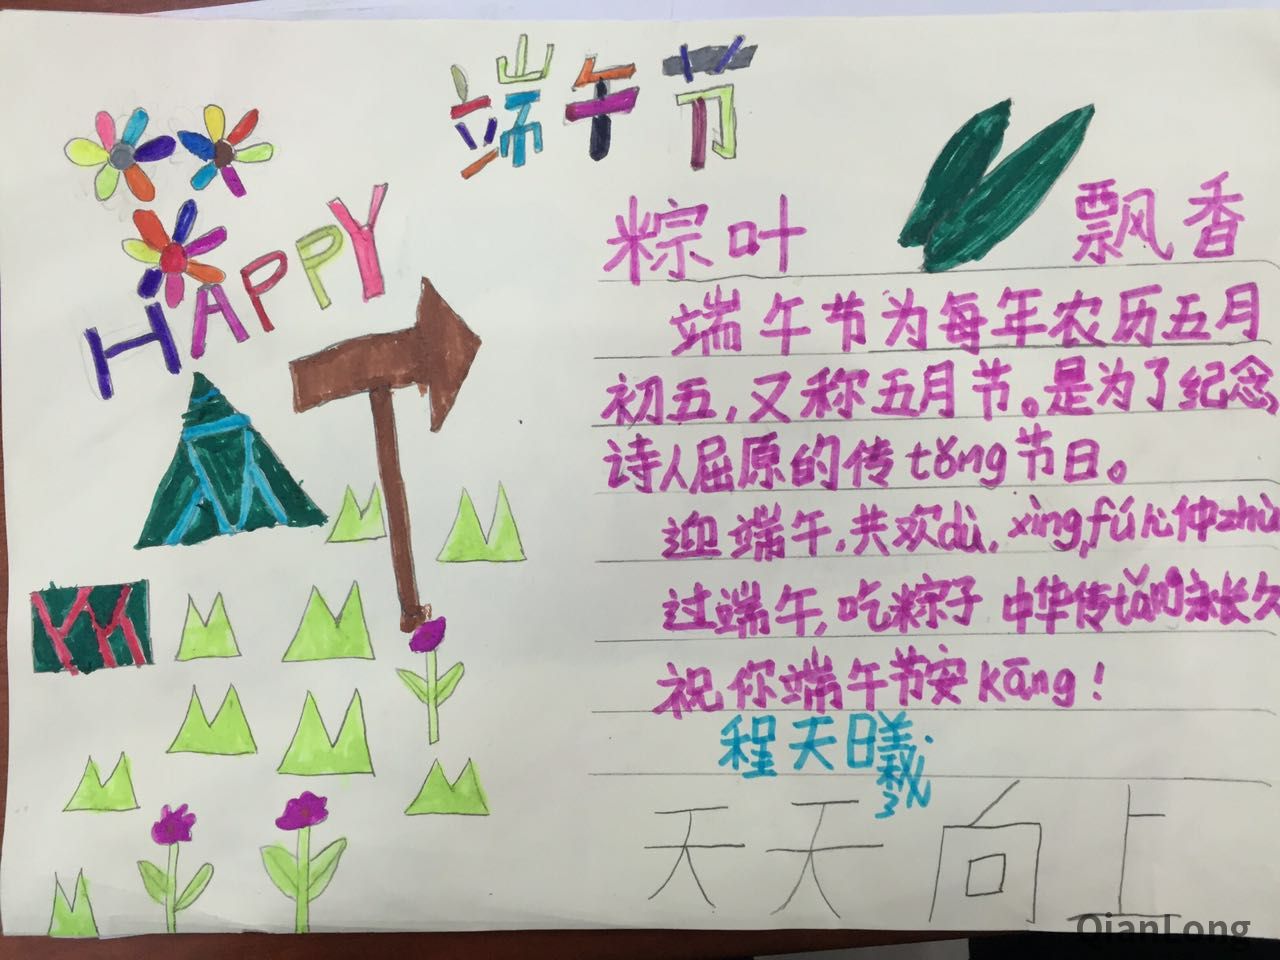 端午节
HAPPY
粽叶 飘香
端午节为每年农历五月
初五,又称五月节。是为了纪念
诗人屈原的传tǒng节日。
迎端午,共欢dù,xìng fú心仲zhù
过端午,吃粽子 中华传 永长久
祝你端午节安kāng!
程天曦
天天向上
QianLong